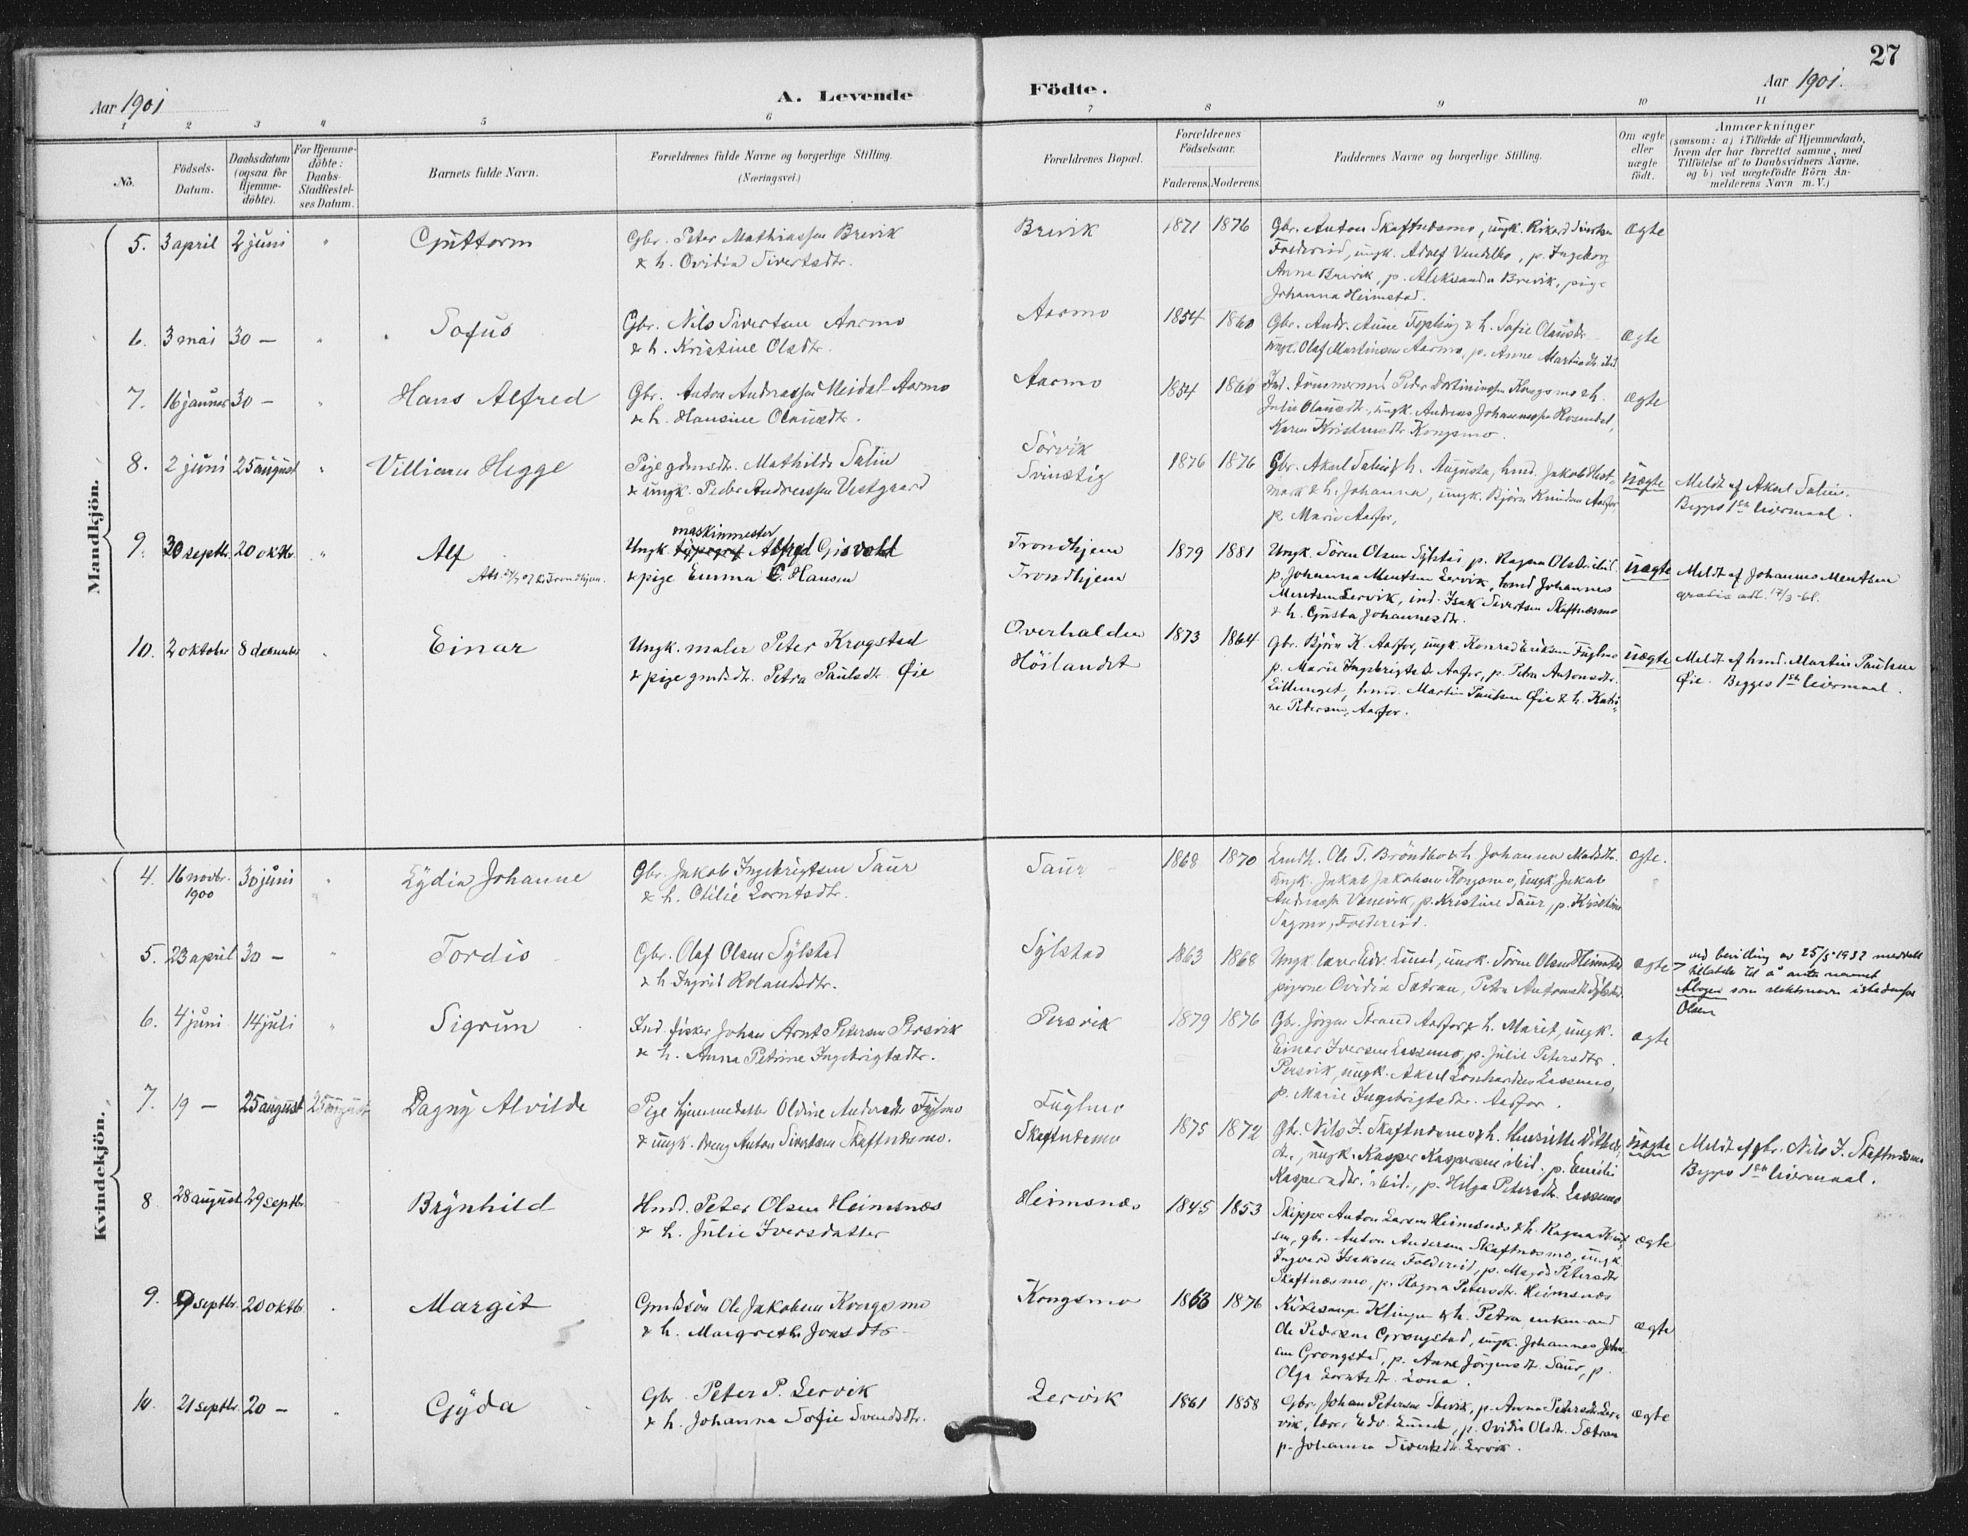 27
Aar 1901 A. Levende Födte. Aar 1901.
1 2 3 4 5 6 7 8 9 10 11
No.
Födsels-Datum.
Daabsdatum (ogsaa for Hjemme-döbte).
For Hjemme-döbte: Daabs-Stadfæstel-ses Datum.
Barnets fulde Navn.
Forældrenes fulde Navne og borgerlige Stilling. (Næringsvei.)
Forældrenes Bopæl.
Forældrenes Födselsaar.
Faderens. Moderens.
Faddernes Navne og borgerlige Stilling.
Om ægte eller uægte födt.
Anmærkninger
(saasom: a) i Tilfælde af Hjemmedaab,
hvem der har forrettet samme, med
Tilföielse af to Daabsvidners Navne,
og b) ved uægtefödte Börn An-
melderens Navn m. V.)
Mandkjön.
5. 3 april 2 juni " Guttorm
Gbr. Peter Mathiassen Brevik
& h. Ovidia Sivertsdtr.
Brevik 1871 1876
Gbr. Anton Skaftnæsmo, ungk. Rikard Sivertsen
Foldereid, ungk. Adolf Vendelbo, p. Ingeborg
Anne Brevik, p. Aleksandra Brevik, pige
Johanna Heimstad.
ægte
6. 3 mai 30 — " Sofus
Gbr. Nils Sivertsen Aarmo
& h. Kristine Olsdtr.
Aarmo 1854 1860
Gbr. Andr. Aune & h. Sofie Olausdtr.
ungk. Olaf Martinsen Aarmo, p. Anne
ægte
7. 16 januar 30 — " Hans Alfred
Gbr. Anton Andreassen Meidal-Aarmo
& h. Hansine Olausdtr.
Aarmo 1854 1860
Ind. Peder Kongsmo & h.
Julie Olausdtr., ungk. Andreas Johannessen Rosendal,
Karen Kongsmo.
ægte
8. 2 juni 25 august " Villiam Hegge
Pige gdmsdtr. Mathilde Salin
& ungk. Peder Andreassen Vestgaard
Sörvik
Svinstig
1876 1876
Gbr. Aksel Salin & h. Augusta, hmd. Jakob
& h. Johanna, ungk. Björn Knudsen Aasfor,
p. Marie Aasfor,
uægte
Meldt af Aksel Salin.
Begges 1ste leiermaal.
9. 30 septbr. 20 oktbr. " Alf
maskinmester
Ungk. Alfred Gisvold
& pige Emma C. Hansen
Trondhjem
Trondhjem
1879 1881
Ungk. Sören Olsen Sylstad p. Ragna Olsdtr. ibid.
p. Johanna Mentsen Lervik, hmd Johannes
Mentsen Lervik, ind. Isak Sivertsen Skaftnæsmo
& h. Gusta Johannesdtr.
uægte
Meldt af Johannes Mentsen
10. 2 oktober 8 december " Einar
Ungk. maler Peter Krogstad
& pige gmdsdtr. Petra Paulsdtr. Öie
Overhalden
Höilandet
1873 1864
Gbr. Björn K. Aasfor, ungk. Konrad Eriksen Fuglmo
p. Marie Ingebrigtsdtr. Aasfor, p. Petra Antonsdtr.
hmd. Martin Paulsen Öie & h. Katri-
ne Petersen, Aasfor.
uægte
Meldt af hmd. Martin Paulsen
Öie. Begges 1ste leiermaal.
Kvindekjön.
4. 16 novbr. 1900 30 juni " Lydia Johanne
Gbr. Jakob Ingebrigtsen Saur
& h. Otilie Lorntsdtr.
Saur 1868 1870
Ole T. Bröndbo & h. Johanna Madsdtr.
Ungk. Jakob Jakobsen Kongsmo, ungk Jakob
Andreassen p. Kristine Saur, p. Kristine
Sagmo, Foldereid.
ægte.
5. 23 april 30 — " Tordis
Gbr. Olaf Olsen Sylstad
& h Ingrid Rolandsdtr.
Sylstad 1863 1868
Ungk. lærer Edv. Lund, ungk. Sörne Olsen Heimstad
pigerne Ovidia Sætran, Petra Antonsdtr. Sylstad.
ægte
ved bevilling av 25/5 1937 meddelt
tilatelse til å anta navnet
som slektsnavn istedenfor
Olsen
6. 4 juni 14 juli " Sigrun
Ind. fisker Johan Arnt Petersen Persvik
& h. Anna Petrine Ingebrigtsdtr.
Persvik 1879 1876
Gbr. Jörgen Strand Aasfor & h. Marit, ungk.
Einar Iversen Lassemo, p. Julie Petersdtr.
Persvik, ungk. Aksel Leonhardsen Lassemo,
p. Marie Ingebrigtsdtr. Aasfor.
ægte
7. 19 — 25 august 25 august Dagny Alvilde
Pige hjemmedatter Oldine Andersdtr. Fuglmo
& ungk. Anton Sivertsen Skaftnæsmo.
Fuglmo
Skaftnæsmo
1875 1872
Gbr. Nils I. Skaftnæsmo & h. Henriette
ungk. Kasper Kaspersen ibid. p. Emilie
Kaspersdtr. ibid., p. Helga Petersdtr. Lassemo
uægte
Meldt af gbr. Nils I. Skaftnæsmo
Begges 1ste leiermaal.
8 28 august 29 septbr. Brynhild
Hmd. Peter Olsen Heimsnæs
& h. Julie Iversdatter
Heimsnæs 1845 1853
Skipper Anton Larsen Heimsnæs & h. Ragna
gbr. Anton Andersen Skaftnæsmo, ungk
Ingvard Isaksen Foldereid, p. Magda Petersdtr
Skaftnæsmo, p. Ragna Petersdtr. Heimsnæs
ægte
9. 9 septbr. 20 oktbr. " Margit
Gmdssön Ole Jakobsen Kongsmo
& h. Margrethe Jonsdtr.
Kongsmo 1863 1876
Kirkesanger Klingen & h. Petra enkemand
Ole Pedersen Grongstad, ungk. Johannes
Grongstad, p. Anne Jörgensdtr. Saur, p.
Olga Lorntsdtr. Lona.
ægte
10. 21 septbr. 20 — " Gyda
Gbr. Peter P. Lervik
& h. Johanna Sofie Svendsdtr.
Lervik 1861 1858
Gbr. Johan Petersen p. Anna Petersdtr. Ler-
vik, lærer Edv. Lund, p. Ovidia Olsdtr. Sætran
p. Johanna Sivertsdtr. Lervik.
ægte